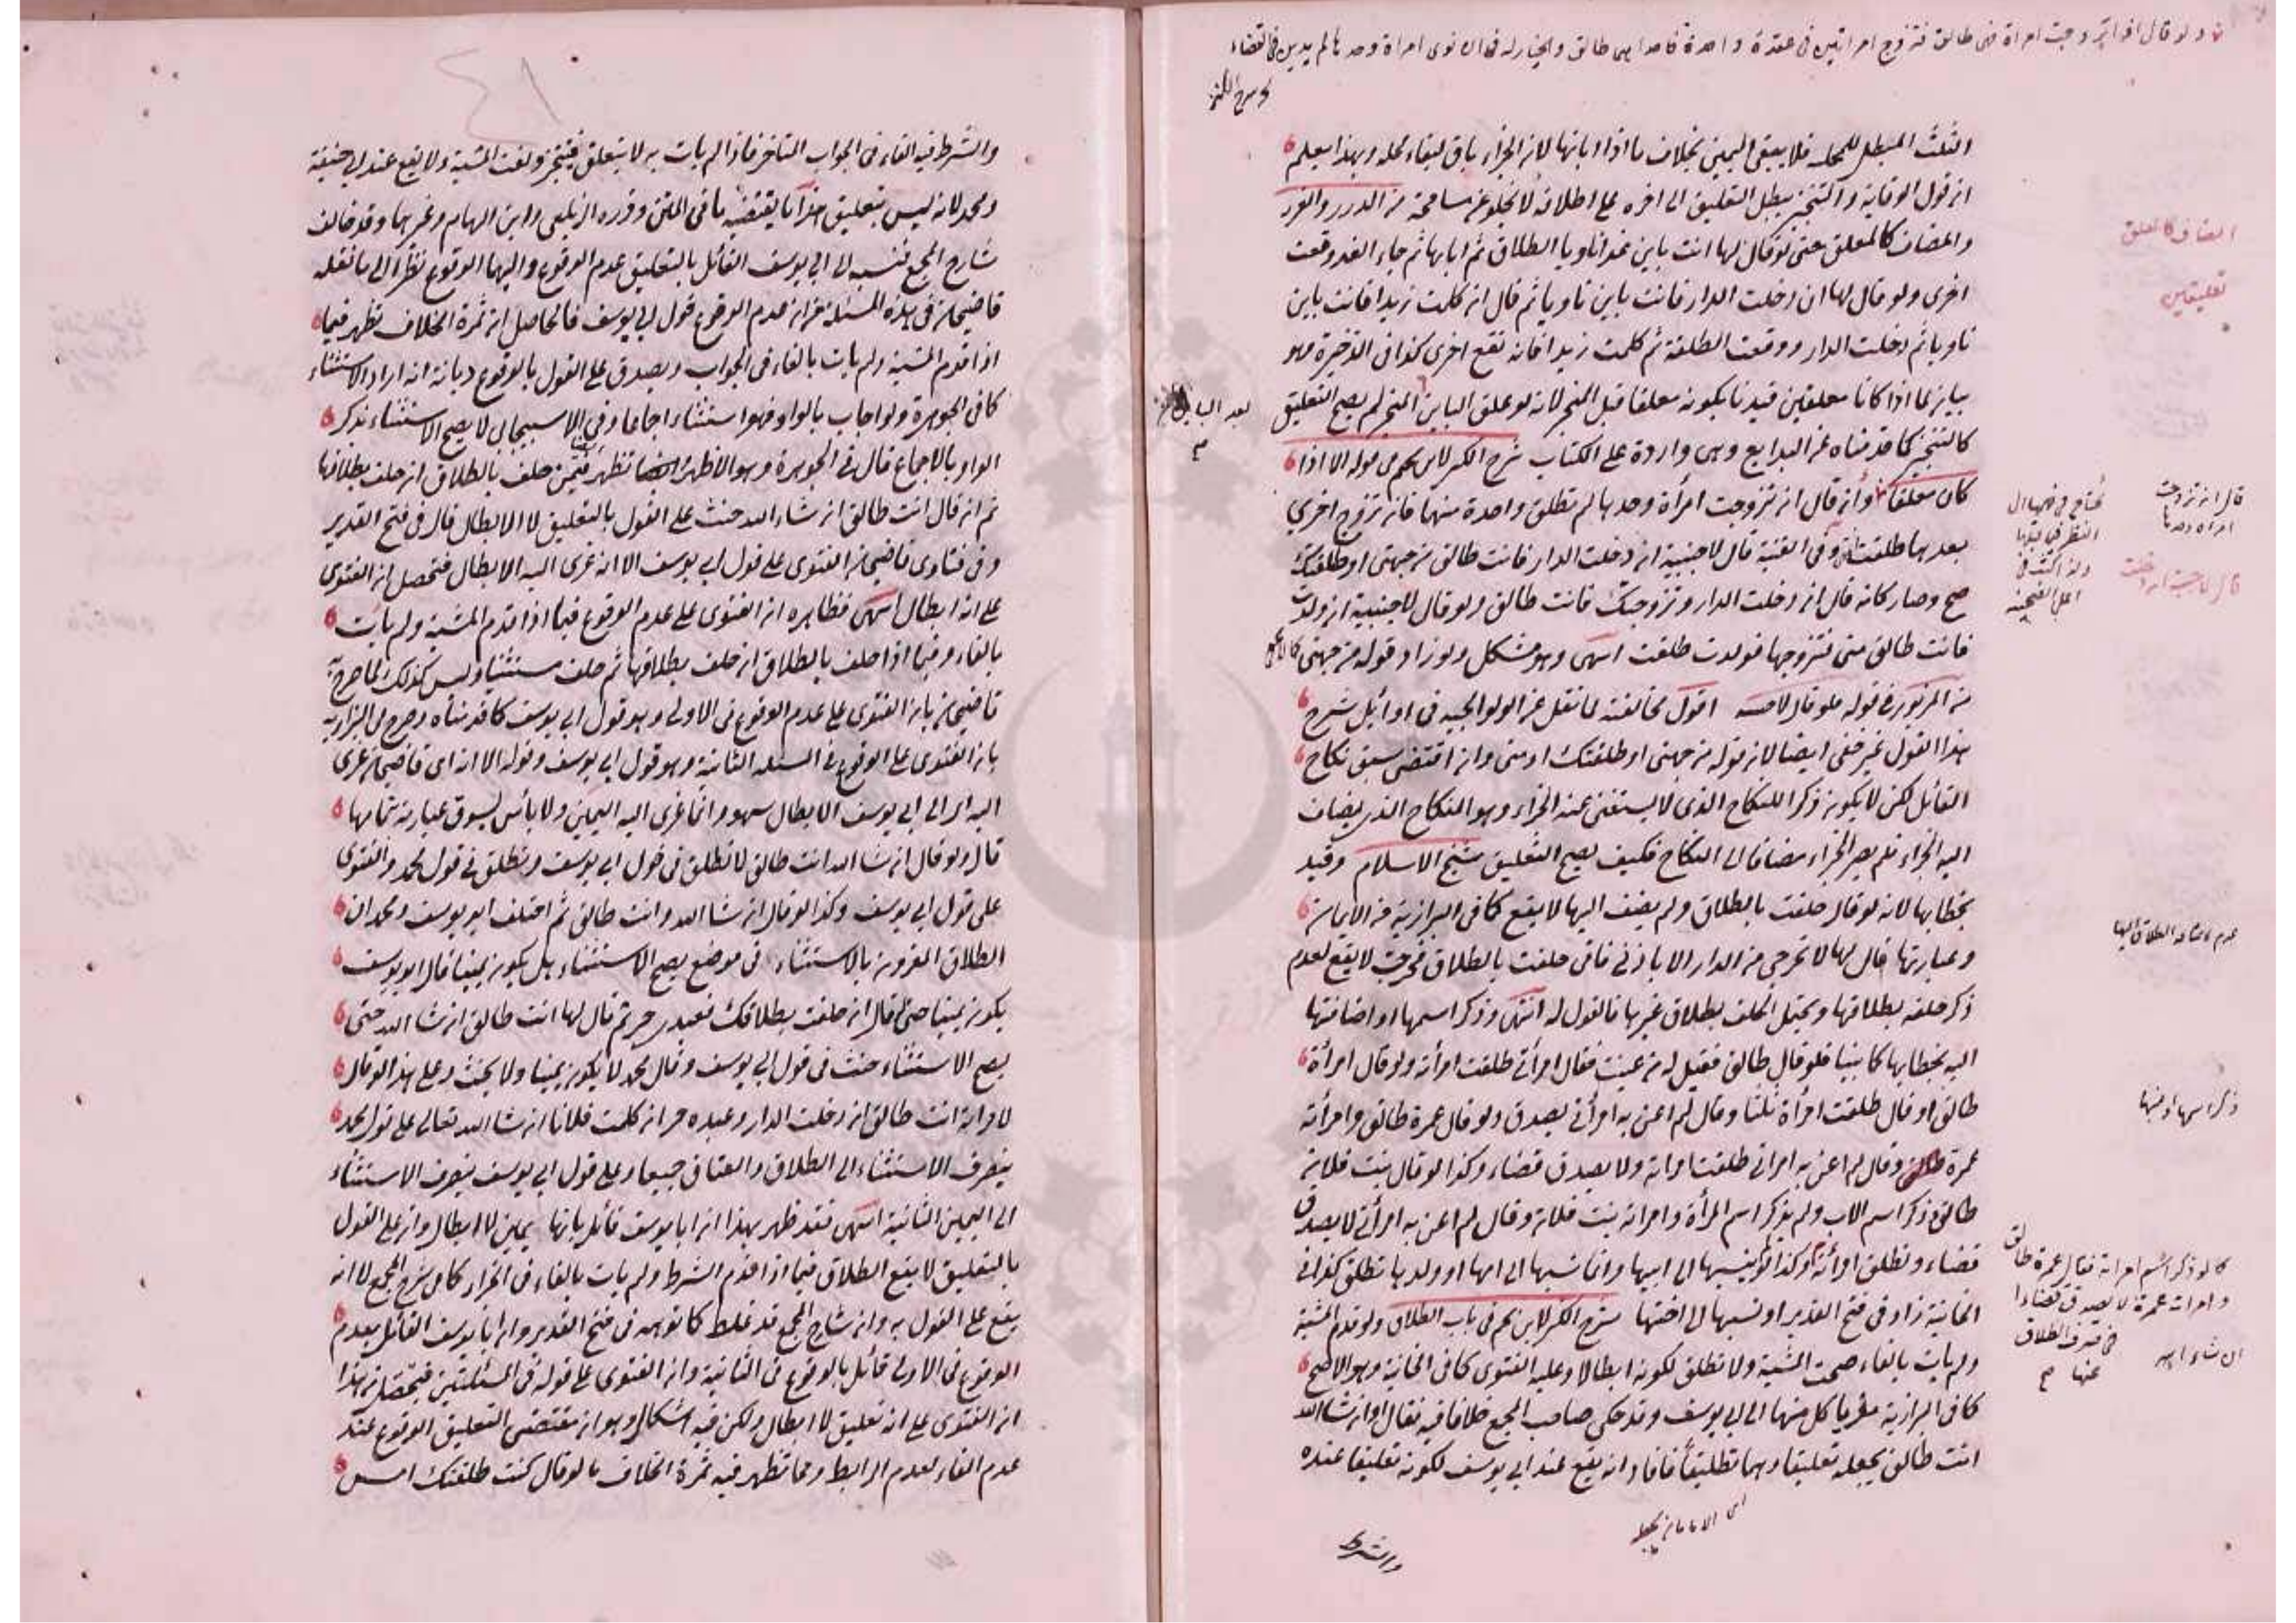 ولو قال ان تزوجت امرأة فهي طالق فتزوج امرأتين في عقدة واحدة فاحداهما طالق والخيار له فان نوى امرأة وحدها لم يدين في القضاء
الثلث المبطل للمحل فلا يبقى اليمين بخلاف ما اذا ابانها لان الجزاء باق لبقاء محله وبهذا يعلم
ان قول الوقاية والتنجيز يبطل التعليق الى اخره على اطلاقه لا يخلو عن مسامحة من الدرر والغرر
والمضاف كالمعلق حتى لو قال لها انت باين غدا ناويا الطلاق ثم ابانها ثم جاء الغد وقعت
اخرى ولو قال لها ان دخلت الدار فانت باين ناويا ثم قال ان كلمت زيدا فانت باين
ناويا ثم دخلت الدار ووقعت الطلقة ثم كلمت زيدا فانه تقع اخرى كذا في الذخيرة وهو
بيان لما اذا كانا معلقين قيدنا بكونه معلقا قبل المنجز لانه لو علق الباين المنجز لم يصح التعليق
كالتنجيز كما قدمناه عن البدايع وهي واردة على الكتاب شرح الكنز لابن نجيم من قوله الا اذا
كان معلقا وان قال ان تزوجت امرأة وحدها لم تطلق واحدة منهما فان تزوج اخرى
بعدها طلقت وفي القنية قال لاجنبية ان دخلت الدار فانت طالق من جهتي او طلقتك
صح وصار كانه قال ان دخلت الدار وتزوجتك فانت طالق ولو قال لاجنبية ان ولدت
فانت طالق مني فتزوجها فولدت طلقت انتهى وهو مشكل ولو زاد قوله من جهتي
من المزبور في قوله فلو قال لامته اقول مخالفته لما نقل عن الولوالجية في اوائل شرح
هذا القول غير خفي ايضا لان قوله من جهتي او طلقتك او مني وان اقتضى سبق نكاح
القائل لكن لا يكون ذكرا للنكاح الذي لا يستغنى عنه الجزاء وهو النكاح الذي يضاف
اليه الجزاء فلم يصر الجزاء مضافا الى النكاح فكيف يصح التعليق شيخ الاسلام وقيد
بخطابها لانه لو قال حلفت بالطلاق ولم يضف اليها لا يقع كما في البزازية من الايمان
وعبارتها قال لها لا تخرجي من الدار الا باذني فاني حلفت بالطلاق فخرجت لا يقع لعدم
ذكر حلفه بطلاقها ويحتمل الحلف بطلاق غيرها فالقول له انتهى وذكر اسمها او اضافتها
اليه بخطابها كما بينا فلو قال طالق فقيل له من عنيت فقال امرأتي طلقت امرأته ولو قال امرأة
طالق او قال طلقت امرأة ثلثا وقال لم اعن به امرأتي يصدق ولو قال عمرة طالق وامرأته
عمرة وقال لم اعن به امرأتي طلقت امرأته ولا يصدق قضاء وكذا لو قال بنت فلان
طالق ذكر اسم الاب ولم يذكر اسم المرأة وامرأته بنت فلان وقال لم اعن به امرأتي لا يصدق
قضاء وتطلق امرأته وكذا لو لم ينسبها الى ابيها وانما نسبها الى امها او ولدها تطلق كذا في
الخانية زاد في فتح القدير او نسبها الى اختها شرح الكنز لابن نجيم في باب الطلاق ولو قدم المشية
ولم يات بالفاء صحت المشية ولا تطلق لكونه ابطالا وعليه الفتوى كما في الخانية وهو الاصح
كما في البزازية كل منهما الى ابي يوسف وقد حكى صاحب المجمع خلافا فيه فقال او ان شاء الله
انت طالق يجعله تعليقا وهما تطليقا فافاد انه يقع عند ابي يوسف لكونه تعليقا عنده
والشرط
المضاف كالمعلق
تعليقين
قال ان تزوجت
امرأة وحدها
ذكر اسمها او
كما لو ذكر اسم امرأته فقال عمرة طالق
وامرأته عمرة لا يصدق قضاء
ان شاء الله
والشرط فيه الفاء في الجواب المتاخر فاذا لم يات به لا يتعلق فيتنجز ولغت المشية ولا يقع عند ابي حنيفة
ومحمد لانه ليس بتعليق هذا ما يقتضيه ما في المتن وقرره الزيلعي وابن الهمام وغيرهما وقد خالف
شارح المجمع فنسبه الى ابي يوسف القائل بالتعليق عدم الوقوع واليهما الوقوع نظرا الى ما نقله
قاضيخان في هذه المسئلة من ان عدم الوقوع قول ابي يوسف فالحاصل ان ثمرة الخلاف تظهر فيما
اذا قدم المشية ولم يات بالفاء في الجواب ويصدق على القول بالوقوع ديانة انه اراد الاستثناء
كما في الجوهرة ولو اجاب بالواو فهو استثناء اجماعا وفي الاسبيجابي لا يصح الاستثناء بذكر
الواو بالاجماع قال في الجوهرة وهو الاظهر وايضا تظهر فيمن حلف بالطلاق ان حلف بطلاقها
ثم انه قال انت طالق ان شاء الله حنث على القول بالتعليق لا الابطال قال في فتح القدير
وفي فتاوى قاضيخان الفتوى على قول ابي يوسف الا انه عزى اليه الابطال فتحصل ان الفتوى
على انه ابطال انتهى فظاهره ان الفتوى على عدم الوقوع فيما اذا قدم المشية ولم يات
بالفاء وفيما اذا حلف بالطلاق ان حلف بطلاقها ثم حلف مستثنيا وليس كذلك لما صرح
قاضيخان بان الفتوى على عدم الوقوع في الاولى وهو قول ابي يوسف كما قدمناه وصرح في البزازية
بان الفتوى على الوقوع في المسئلة الثانية وهو قول ابي يوسف وقوله الا انه اي قاضيخان عزى
اليه اي الى ابي يوسف الابطال سهو وانما عزى اليه اليمين ولا باس بسوق عبارته بتمامها
قال ولو قال ان شاء الله انت طالق لا تطلق في قول ابي يوسف وتطلق في قول محمد والفتوى
على قول ابي يوسف وكذا لو قال ان شاء الله وانت طالق ثم اختلف ابو يوسف ومحمد ان
الطلاق المقرون بالاستثناء في موضع يصح الاستثناء هل يكون يمينا قال ابو يوسف
يكون يمينا حتى لو قال ان حلفت بطلاقك فعبدي حر ثم قال لها انت طالق ان شاء الله حتى
يصح الاستثناء حنث في قول ابي يوسف وقال محمد لا يكون يمينا ولا يحنث وعلى هذا لو قال
لامرأته انت طالق ان دخلت الدار وعبده حر ان كلمت فلانا ان شاء الله تعالى على قول محمد
ينصرف الاستثناء الى الطلاق والعتاق جميعا وعلى قول ابي يوسف ينصرف الاستثناء
الى اليمين الثانية انتهى فقد ظهر بهذا ان ابا يوسف قائل بانها يمين لا ابطال وان على القول
بالتعليق لا يقع الطلاق فيما اذا قدم الشرط ولم يات بالفاء في الجزاء كما في شرح المجمع لا انه
يقع على القول به وان شارح المجمع قد غلط كما توهمه في فتح القدير وان ابا يوسف القائل بعدم
الوقوع في الاولى قائل بالوقوع في الثانية وان الفتوى على قوله في المسئلتين فتحصل من هذا
ان الفتوى على انه تعليق لا ابطال ولكن فيه اشكال وهو ان مقتضى التعليق الوقوع عند
عدم الفاء لعدم الرابط ومما تظهر فيه ثمرة الخلاف ما لو قال كنت طلقتك امس